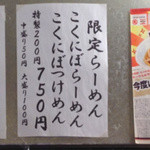 限定らーめん
こくにぼらーめん
こくにぼつけめん
750円
特製200円
中盛り50円 大盛り100円
今度